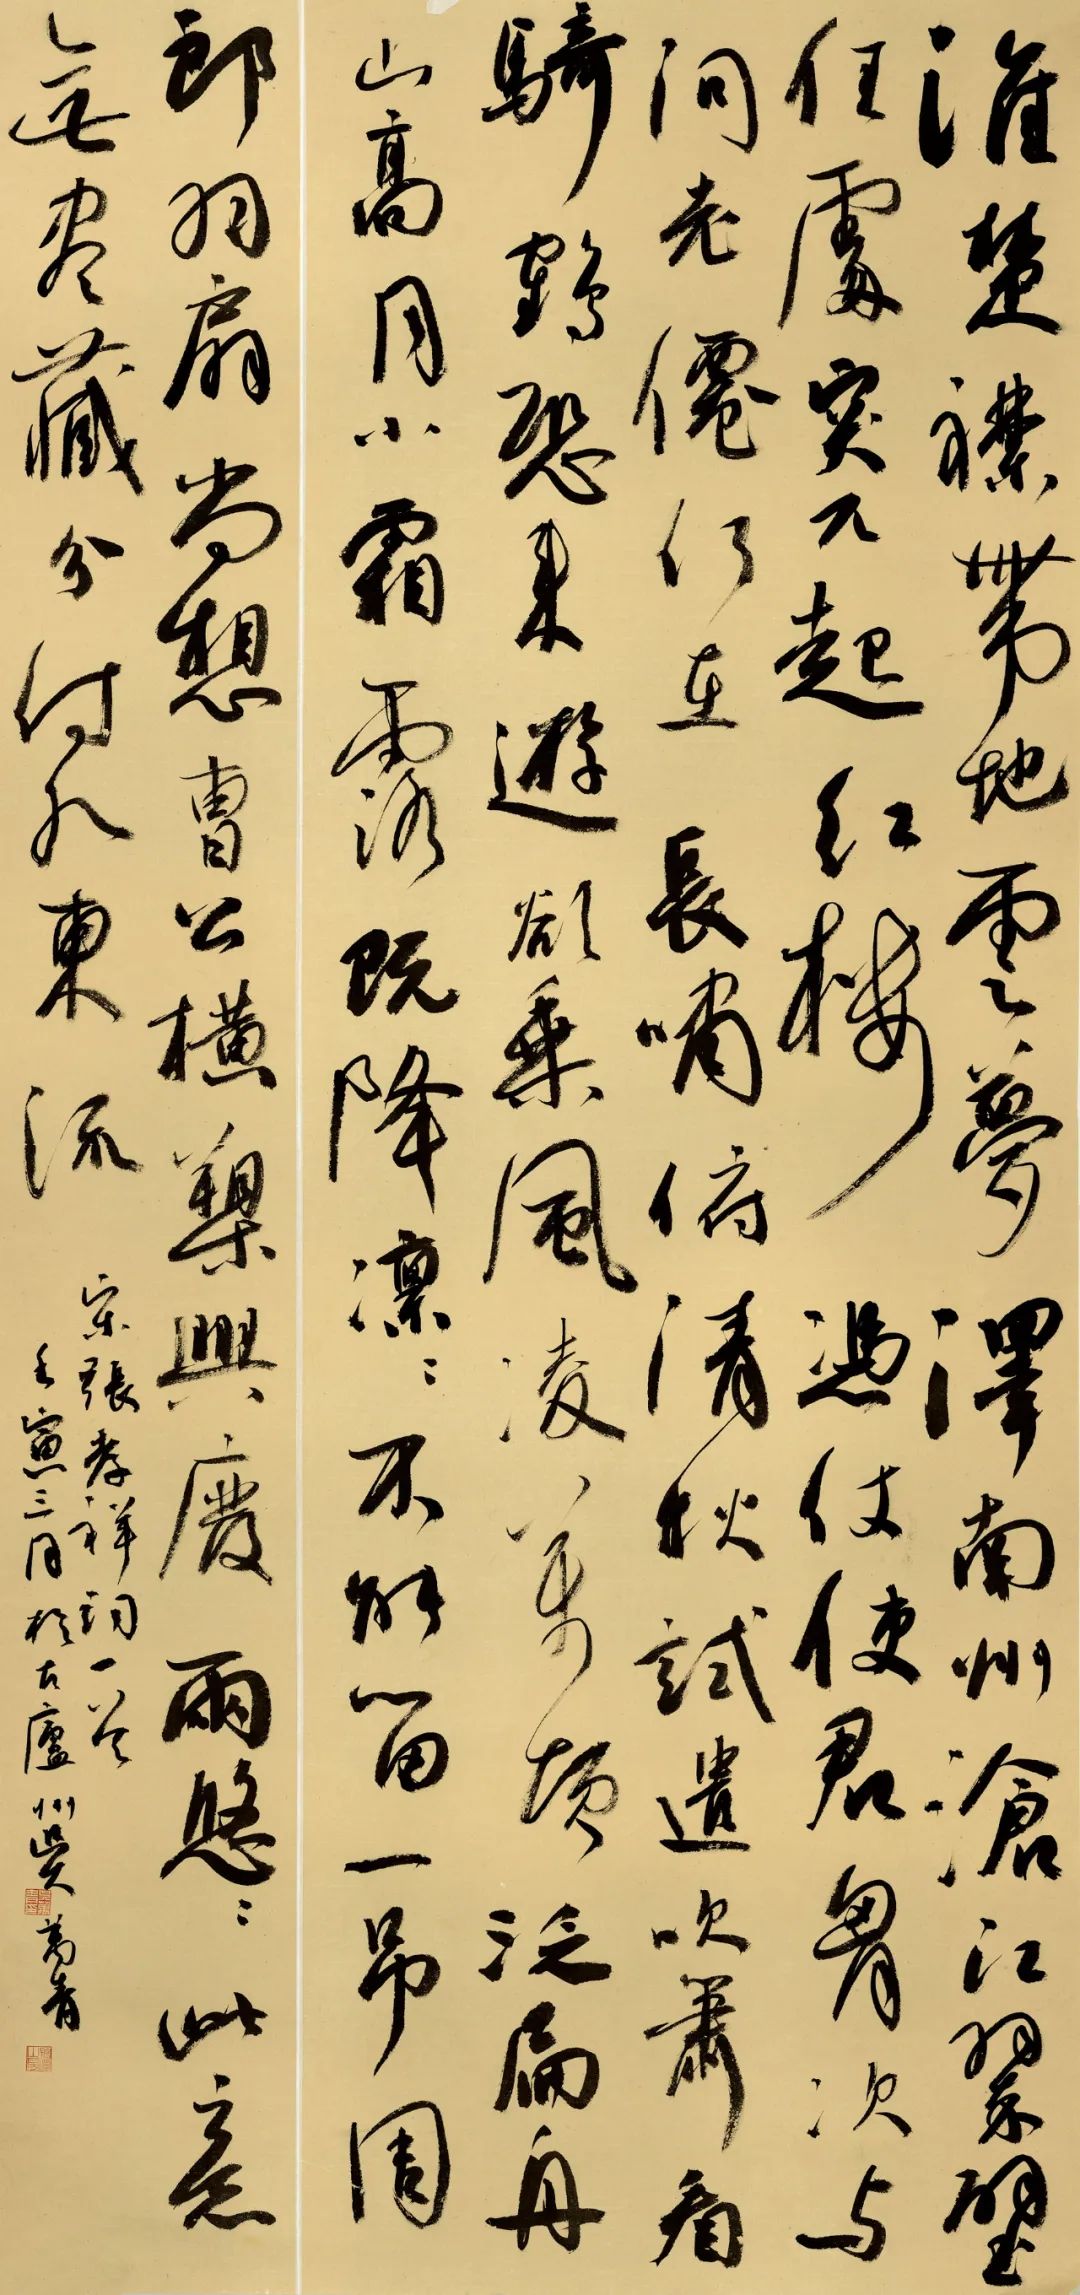 淮楚襟帶地雲夢澤南州滄江翠壁
佳處突兀起紅樓憑仗使君胷次与
問老僊何在長嘯俯清秋試遣吹簫看
騎鶴恐來遊欲乘風凌萬頃泛扁舟
山高月小霜露既降凛〻不能留一吊周
郎羽扇尚想曹公橫槊興廢兩悠〻此意
無盡藏分付水東流
宋張孝祥詞一首
壬寅三月於古廬州 萬青